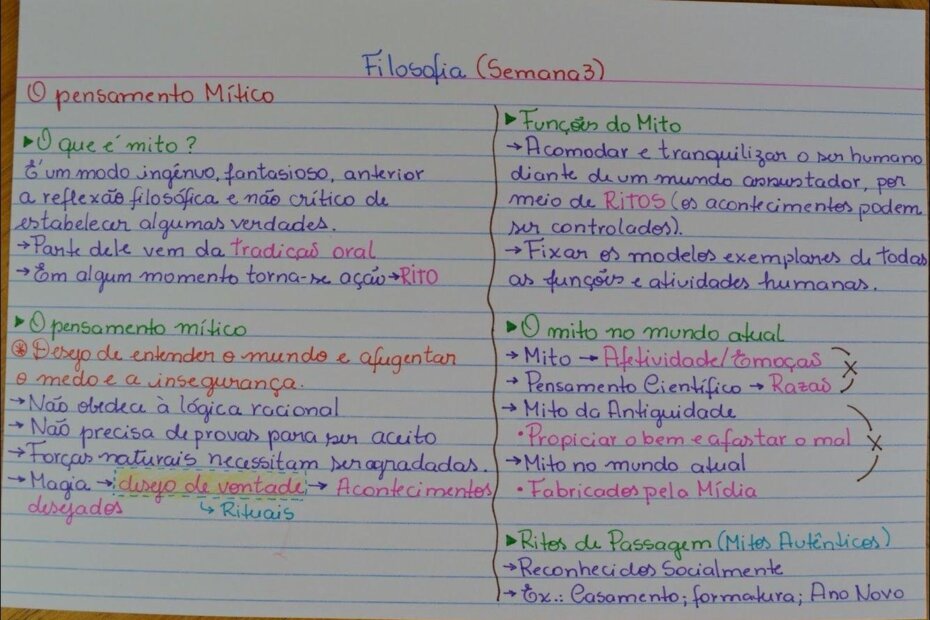 Filosofia (Semana 3)
O pensamento Mítico
▶O que é mito?
É um modo ingênuo, fantasioso, anterior
a reflexão filosófica e não crítico de
estabelecer algumas verdades.
→Parte dele vem da tradição oral
→Em algum momento torna-se ação→RITO
▶O pensamento mítico
* Desejo de entender o mundo e afugentar
o medo e a insegurança.
→Não obedece à lógica racional
→Não precisa de provas para ser aceito
→Forças naturais necessitam ser agradadas.
→Magia → desejo de vontade → Acontecimentos
desejados ↳ Rituais
▶Funções do Mito
→Acomodar e tranquilizar o ser humano
diante de um mundo assustador, por
meio de RITOS (os acontecimentos podem
ser controlados).
→Fixar os modelos exemplares de todas
as funções e atividades humanas.
▶O mito no mundo atual
→Mito → Afetividade/Emoção
→Pensamento Científico → Razão X
→Mito da Antiguidade
•Propiciar o bem e afastar o mal X
→Mito no mundo atual
•Fabricados pela Mídia
▶Ritos de Passagem (Mitos Autênticos)
→Reconhecidos Socialmente
→Ex.: Casamento; formatura; Ano Novo